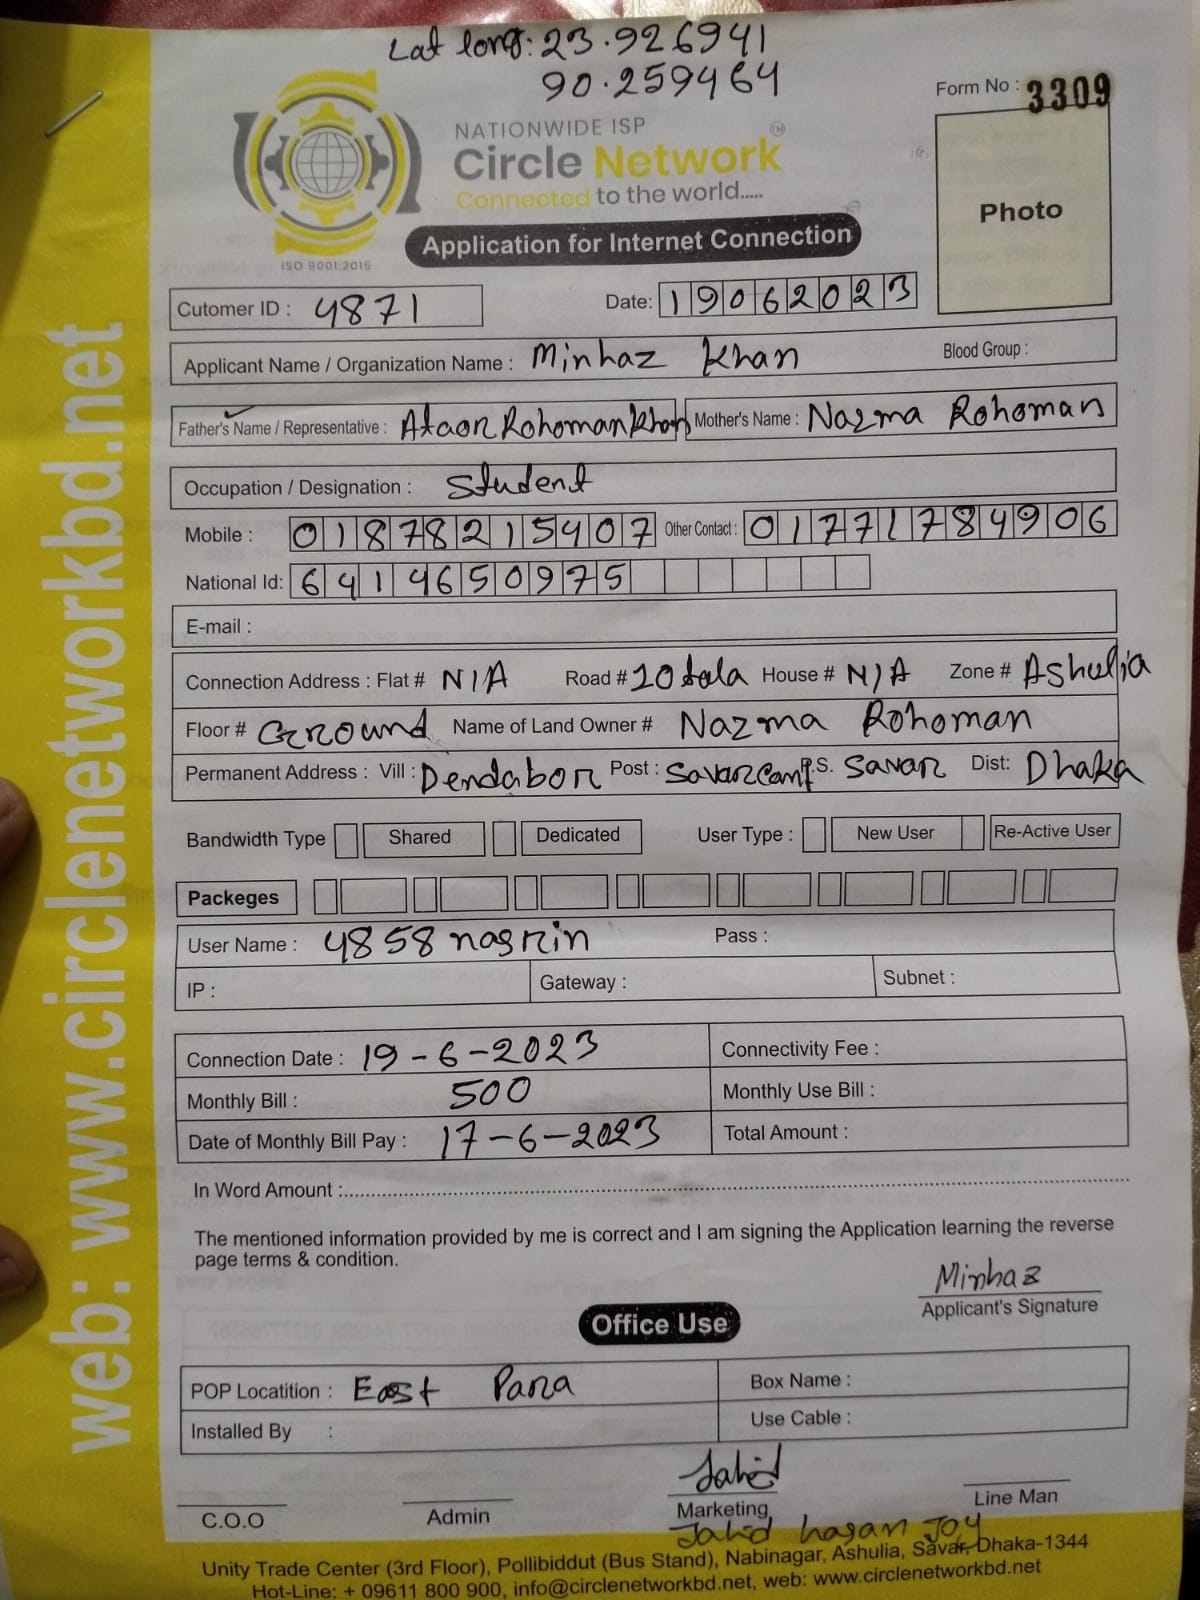 Lat long: 23.926941
90.259464
Form No : 3309
NATIONWIDE ISP
Circle Network
TM
Connected to the world.....
ISO 9001:2015
Application for Internet Connection
Photo
Cutomer ID : 4871
Date: 19062023
Applicant Name / Organization Name : Minhaz Khan
Blood Group :
Father's Name / Representative : Ataor Rohoman Khan
Mother's Name : Nazma Rohoman
Occupation / Designation : Student
Mobile : 01878215407 Other Contact : 01771784906
National Id: 6414650975
E-mail :
Connection Address : Flat # N/A Road # 10 tala House # N/A Zone # Ashulia
Floor # Ground Name of Land Owner # Nazma Rohoman
Permanent Address : Vill : Dendabor Post : Savar Camp P.S. Savar Dist: Dhaka
Bandwidth Type Shared Dedicated User Type : New User Re-Active User
Packeges
User Name : 4858 nasrin Pass :
IP : Gateway : Subnet :
Connection Date : 19-6-2023 Connectivity Fee :
Monthly Bill : 500 Monthly Use Bill :
Date of Monthly Bill Pay : 17-6-2023 Total Amount :
In Word Amount :
The mentioned information provided by me is correct and I am signing the Application learning the reverse
page terms & condition.
Minhaz
Applicant's Signature
Office Use
POP Locatition : East Para Box Name :
Installed By : Use Cable :
Jahid
C.O.O Admin Marketing Line Man
Jahid hasan Joy
Unity Trade Center (3rd Floor), Pollibiddut (Bus Stand), Nabinagar, Ashulia, Savar, Dhaka-1344
Hot-Line: + 09611 800 900, info@circlenetworkbd.net, web: www.circlenetworkbd.net
web: www.circlenetworkbd.net